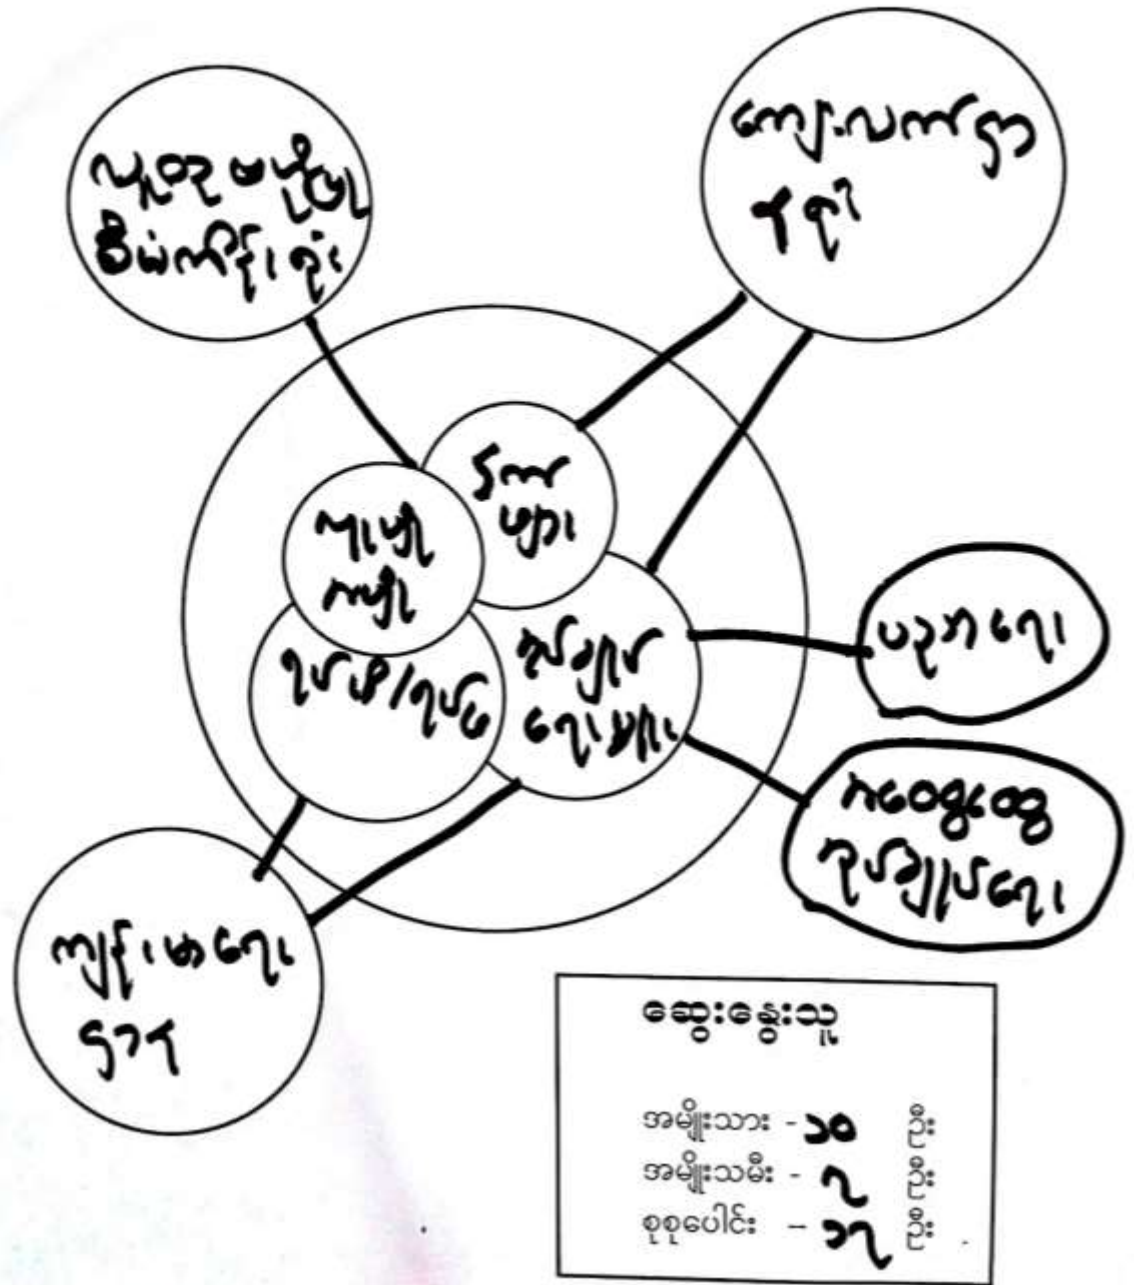 လူထုဗဟိုပြု
စီမံကိန်း၊ရုံး
ကျေးလက်ရွာ
၎က်
များ
ကူမျိုး
ရပ်မိ/ရပ်ဖ
အုပ်ချုပ်
ရေးမှူး
ပညာရေး
အထွေထွေ
အုပ်ချုပ်ရေး
ကျန်းမာရေး
ဌာန
ဆွေးနွေးသူ
အမျိုးသား - ၁၀ ဦး
အမျိုးသမီး - ၇ ဦး
စုစုပေါင်း – ၁၇ ဦး